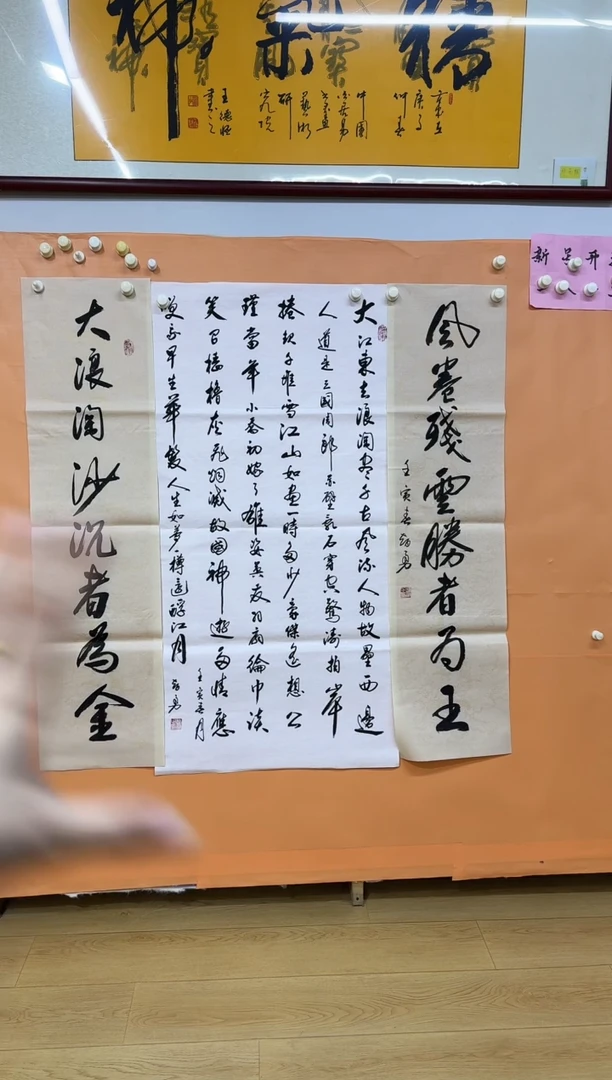 風卷殘雲勝者为王
壬寅春
大江東去浪淘盡千古風流人物故壘西邊
人道是三國周郎赤壁亂石穿空驚濤拍岸
捲起千堆雪江山如畫一時多少豪傑遙想公
瑾當年小喬初嫁了雄姿英發羽扇綸巾談
笑間檣櫓灰飛烟滅故國神遊多情應
笑我早生華髮人生如夢一樽還酹江月
壬寅春月
大浪淘沙沉者為金